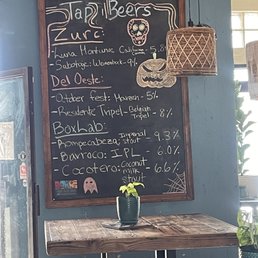 Tap Beers
Zurc:
- Luna 5.8
- Sabotaje: 9%
Del Oeste:
- Octoberfest: Marzen - 5%
- Presidente Tripel - Belgian
Tripel - 8%
BoxLab:
- Rompecabeza: Imperial
stout 9.3%
- Barroco: IPL - 6.0%
- Cocotero: Coconut
milk
stout - 6.6%